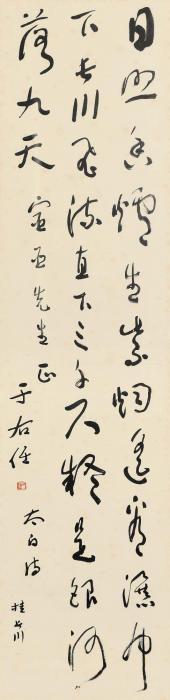 日照香爐生紫煙遙看瀑布
下前川飛流直下三千尺疑是銀河
落九天
先生正
于右任
太白詩
挂前川